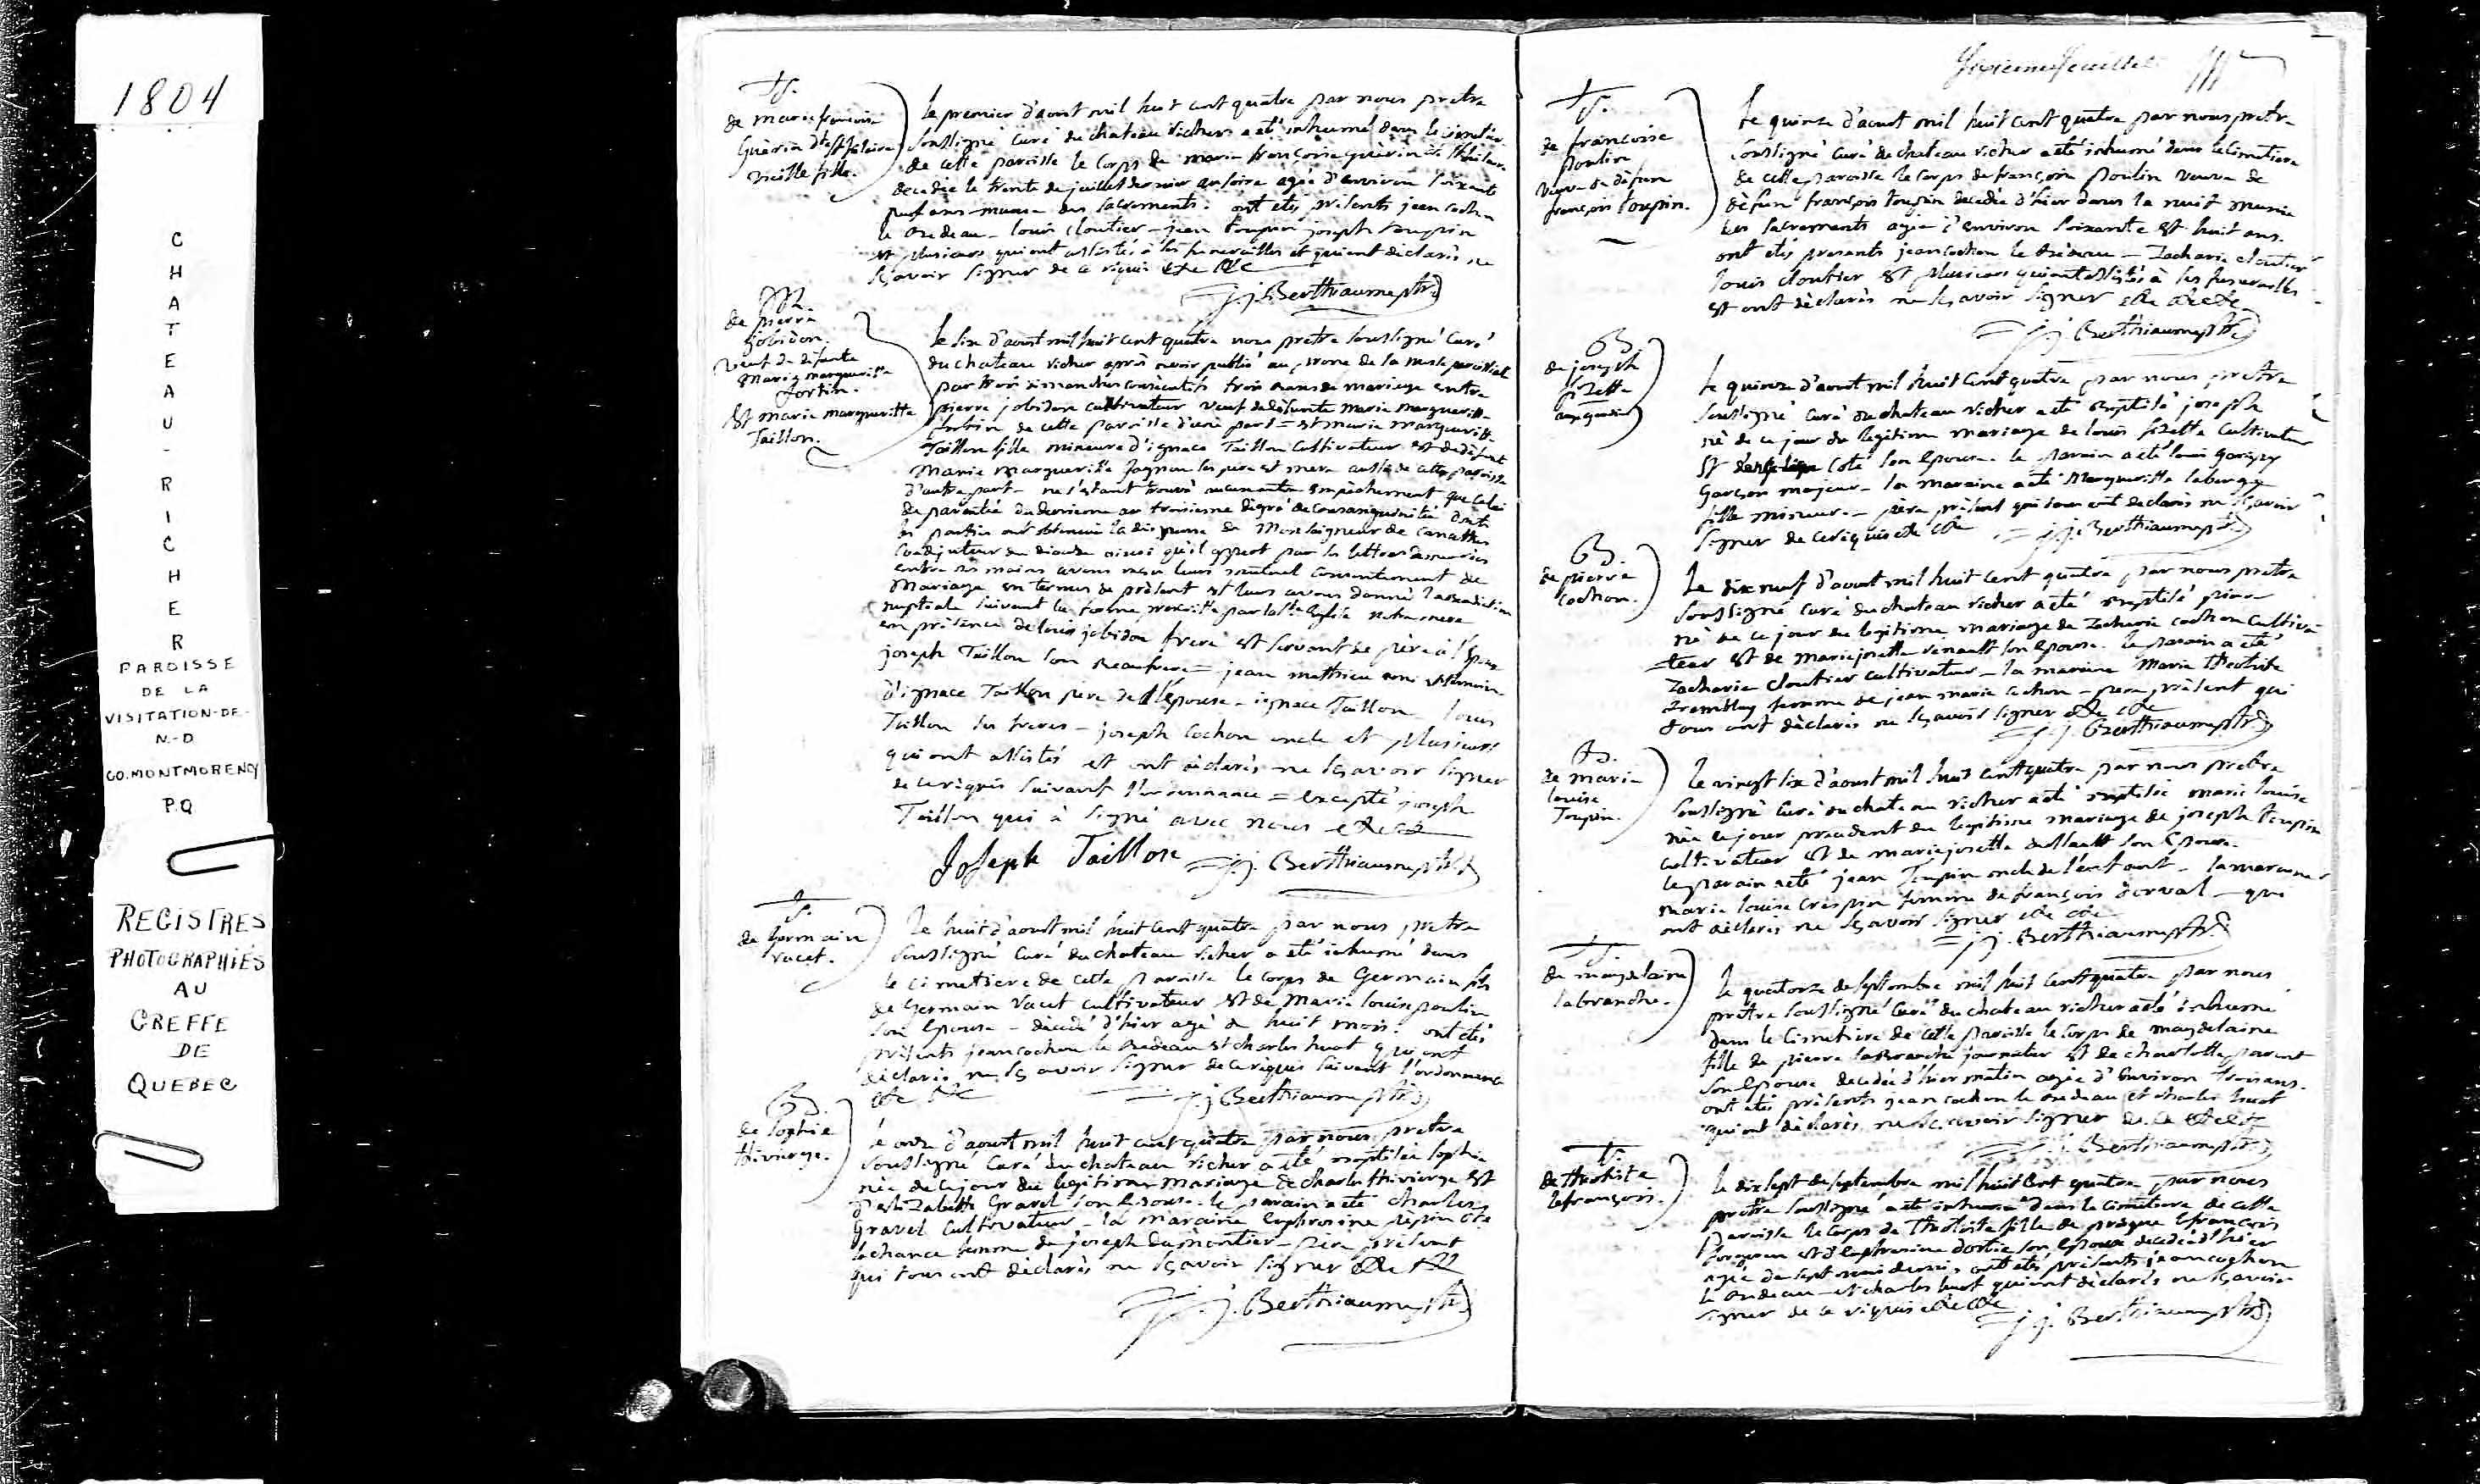 1804
CHATEAU-RICHER
PAROISSE
DE LA
VISITATION-DE-
N.-D
CO. MONTMORENCY
P.Q
REGISTRES
PHOTOGRAPHIÉS
AU
GREFFE
DE
QUEBEC
S.
de marie françoise
Guèrin dte St hilaire
vieille fille.
le premier d'aout mil huit cent quatre par nous pretre
soussigné curé du chateau richer a eté inhumé dans le cimetiere
de cette paroisse le corps de marie françoise guèrin dte St hilaire
decedée le trente de juillet dernier au soire agée d'environ soixante
neuf ans munie des sacrements. ont etés présents jean cochon
le bedeau – louis cloutier – jean toupin joseph toupin
et plusieurs qui ont assistés à ses funerailles et qui ont déclarés ne
sçavoir signer de ce riquis &c &c
j.j. Berthiaume ptr.
M.
de pierre
jobidon.
veuf de défunte
Marie margueritte
fortin.
Et marie margueritte
Taillon.
le six d'aout mil huit cent quatre nous pretre soussigné curé
du chateau richer après avoir publié au prone de la messe paroissial
par trois dimanches consécutifs trois bans de mariage entre
pierre jobidon cultivateur veuf de défunte marie margueritte
fortin de cette paroisse d'une part = et marie margueritte
Taillon fille mineure d'ignace Taillon cultivateur et de défunte
Marie margueritte gagnon ses père et mere aussi de cette paroisse
d'autre part – ne s'étant trouvé aucun autre empêchement que celui
de parentée du deuxieme au troisieme dégré de consanguinité dont
les parties ont obtenue la dispense de Monseigneur de canathe
coadjuteur du diocèse ainsi qu'il appert par les lettres
entre nos mains avons reçu leurs mutuel consentement de
Mariage en termes de présent et leurs avons donné la bénédiction
nuptiale suivant la forme prescritte par la Ste église notre mere
en présence de louis jobidon frere et servant de père à l'époux
joseph Taillon son beaufrere = jean mathieu ami
d'ignace Taillon pere de l'épouse – ignace Taillon – louis
Taillon ses freres – joseph Cochon oncle et plusieurs
qui ont assistés et ont déclarés ne sçavoir signer
de ce riquis suivant l'ordonnance = excepté joseph
Taillon qui à signé avec nous &c &c
Joseph Taillon j.j. Berthiaume ptr.
S.
de Germain
vacet.
le huit d'aout mil huit cent quatre par nous pretre
soussigné curé du chateau richer a eté inhumé dans
le cimetiere de cette paroisse le corps de Germain fils
de Germain Vacet cultivateur et de Marie louise poulin
son épouse – décedé d'hier agé de huit mois. ont etés
présents jean cochon le bedeau et charles huot qui ont
déclarés ne sçavoir signer de ce riquis suivant l'ordonnance
&c &c j.j. Berthiaume ptr.
B.
de sophie
thivierge.
le onze d'aout mil huit cent quatre par nous pretre
soussigné curé du chateau richer a eté baptisée sophie
née de ce jour du legitime mariage de charles thivierge et
d'elizabette Gravel son épouse. le parain a eté charles
Gravel cultivateur – la maraine Euphrosine pépin dte
lachance femme de joseph dumontier – père présent
qui tous ont déclarés ne sçavoir signer &c &c
j.j. Berthiaume ptr.
feuillet
S.
de francoise
poulin
veuve de défun
françois toupin.
le quinze d'aout mil huit cent quatre par nous pretre
soussigné curé du chateau richer a eté inhumé dans le cimetiere
de cette paroisse le corps de françoise poulin veuve de
défun françois toupin décedée d'hier dans la nuit munie
des sacrements agée d'environ soixante et huit ans.
ont etés presents jean cochon le bedeau – Zacharie cloutier
louis cloutier et plusieurs qui ont assistés à ses funerailles
et ont déclarés ne sçavoir signer &c &c
j.j. Berthiaume ptr.
B.
de joseph
fizette
le quinze d'aout mil huit cent quatre par nous pretre
soussigné curé du chateau richer a eté baptisé joseph
né de ce jour du legitime mariage de louis fizette cultivateur
et d'angelique coté son épouse. le parain a eté louis gariepy
garçon majeur – la maraine a eté Margueritte laberge
fille mineure – père présent qui tous ont déclarés ne sçavoir
signer de ce riquis &c &c j.j. Berthiaume ptr.
B.
de pierre
cochon.
Le dix neuf d'aout mil huit cent quatre par nous pretre
soussigné curé du chateau richer a eté baptisé pierre
né de ce jour du legitime mariage de Zacharie cochon cultiva-
teur et de marie josette renault son épouse. le parain a eté
Zacharie cloutier cultivateur – la maraine Marie theotiste
Tremblay femme de jean marie cochon – pere présent qui
tous ont déclarés ne sçavoir signer &c &c
j.j. Berthiaume ptr.
B.
de marie
louise
Toupin.
le vingt six d'aout mil huit cent quatre par nous pretre
soussigné curé du chateau richer a eté baptisée marie louise
née le jour precedent du legitime mariage de joseph toupin
cultivateur et de marie josette son épouse.
le parain a eté jean Toupin oncle de l'enfant – la maraine
marie louise crespin femme de françois dorval – qui
ont déclarés ne sçavoir signer &c &c
j.j. Berthiaume ptr.
S.
de magdelaine
labranche.
le quatorze de septembre mil huit cent quatre par nous
pretre soussigné curé du chateau richer a eté inhumé
dans le cimetiere de cette paroisse le corps de magdelaine
fille de pierre labranche journalier et de charlotte parent
son épouse decedée d'hier matin agée d'environ trois ans.
ont etés présents jean cochon le bedeau et charles huot
qui ont déclarés ne sçavoir signer de ce &c &c
j.j. Berthiaume ptr.
S.
de theotiste
lefrançois.
le dix sept de septembre mil huit cent quatre par nous
pretre soussigné a eté inhumé dans le cimetiere de cette
paroisse le corps de Theotiste fille de prisque lefrançois
forgeron et d'Euphrosine son épouse decedée d'hier
agée de sept mois demi, ont etés présents jean cochon
le bedeau et charles huot qui ont déclarés ne sçavoir
signer de ce riquis &c &c
j.j. Berthiaume ptr.